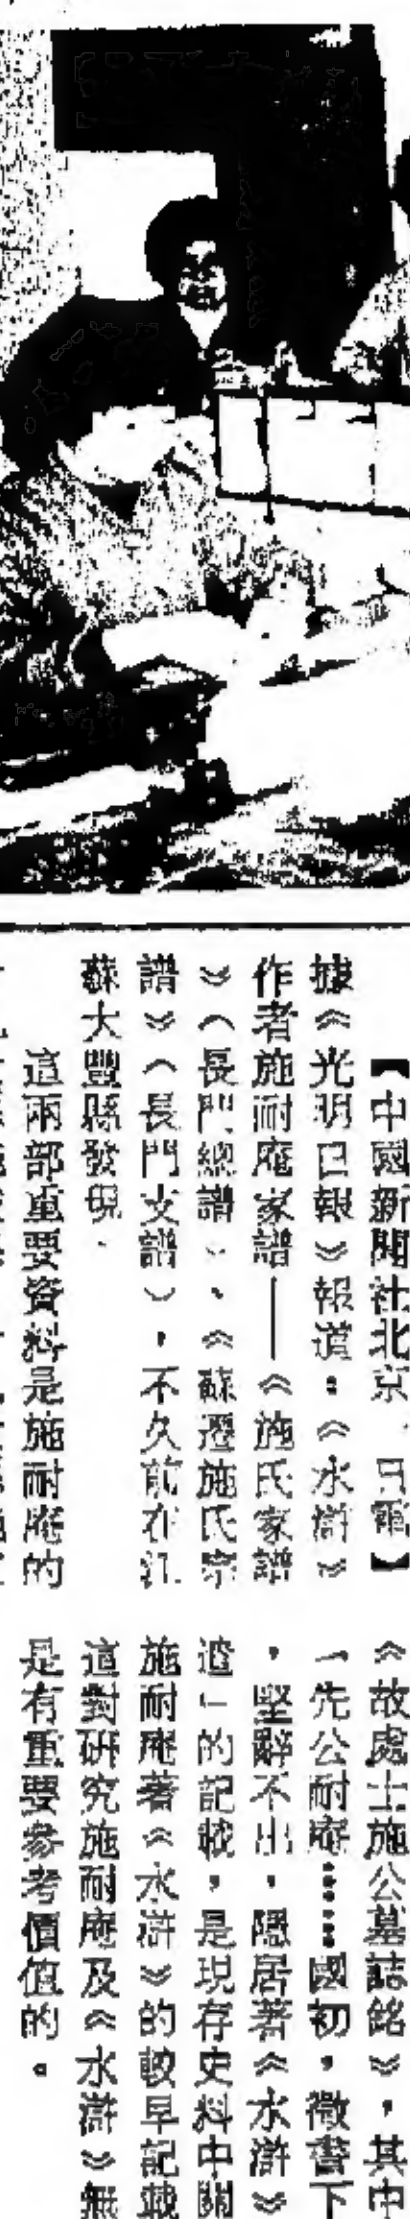 【中國新聞社北京 日電】
據《光明日報》報道：《水滸》
作者施耐庵家譜——《施氏家譜
》（長門總譜）、《蘇遷施氏宗
譜》（長門支譜），不久前在江
蘇大豐縣發現．
這兩部重要資料是施耐庵的
《故處士施公墓誌銘》，其中
「先公耐庵……國初，徵書下
，堅辭不出，隱居著《水滸》
」的記載，是現存史料中關
施耐庵著《水滸》的較早記載
這對研究施耐庵及《水滸》無
是有重要參考價值的。